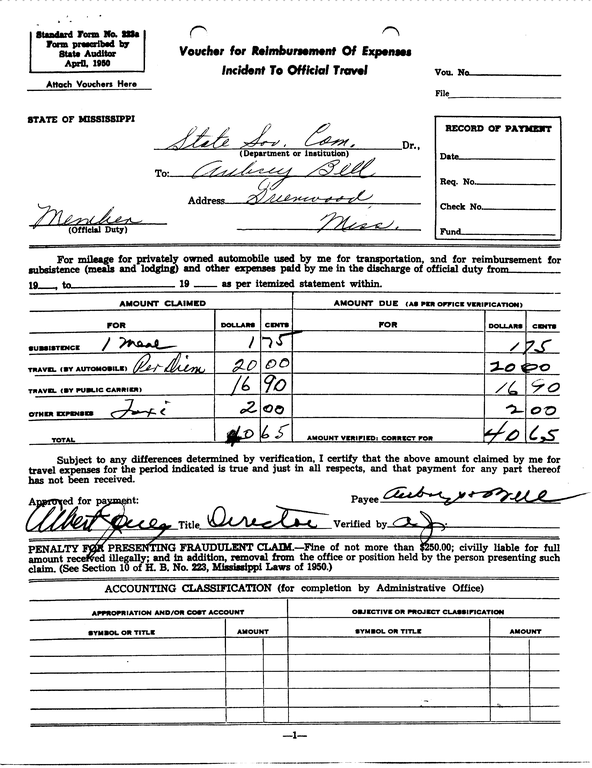 Standard Form No. 223a
Form prescribed by
State Auditor
April, 1950
Attach Vouchers Here
Voucher for Reimbursement Of Expenses
Incident To Official Travel
Vou. No.
File
STATE OF MISSISSIPPI
State Sov. Com. Dr.,
(Department or Institution)
To: Aubrey Bell
Address Greenwood
Miss.
Member
(Official Duty)
RECORD OF PAYMENT
Date
Req. No.
Check No.
Fund
For mileage for privately owned automobile used by me for transportation, and for reimbursement for
subsistence (meals and lodging) and other expenses paid by me in the discharge of official duty from
19 , to 19 as per itemized statement within.
AMOUNT CLAIMED AMOUNT DUE (AS PER OFFICE VERIFICATION)
FOR DOLLARS CENTS FOR DOLLARS CENTS
SUBSISTENCE 1 meal 1 75 1 75
TRAVEL (BY AUTOMOBILE) Per Diem 20 00 20 00
TRAVEL (BY PUBLIC CARRIER) 16 90 16 90
OTHER EXPENSES Taxi 2 00 2 00
TOTAL 40 65 AMOUNT VERIFIED; CORRECT FOR 40 65
Subject to any differences determined by verification, I certify that the above amount claimed by me for
travel expenses for the period indicated is true and just in all respects, and that payment for any part thereof
has not been received.
Approved for payment: Payee Aubrey Bell
Albert Jones Title Director Verified by a.j.
PENALTY FOR PRESENTING FRAUDULENT CLAIM.—Fine of not more than $250.00; civilly liable for full
amount received illegally; and in addition, removal from the office or position held by the person presenting such
claim. (See Section 10 of H. B. No. 223, Mississippi Laws of 1950.)
ACCOUNTING CLASSIFICATION (for completion by Administrative Office)
APPROPRIATION AND/OR COST ACCOUNT OBJECTIVE OR PROJECT CLASSIFICATION
SYMBOL OR TITLE AMOUNT SYMBOL OR TITLE AMOUNT
—1—